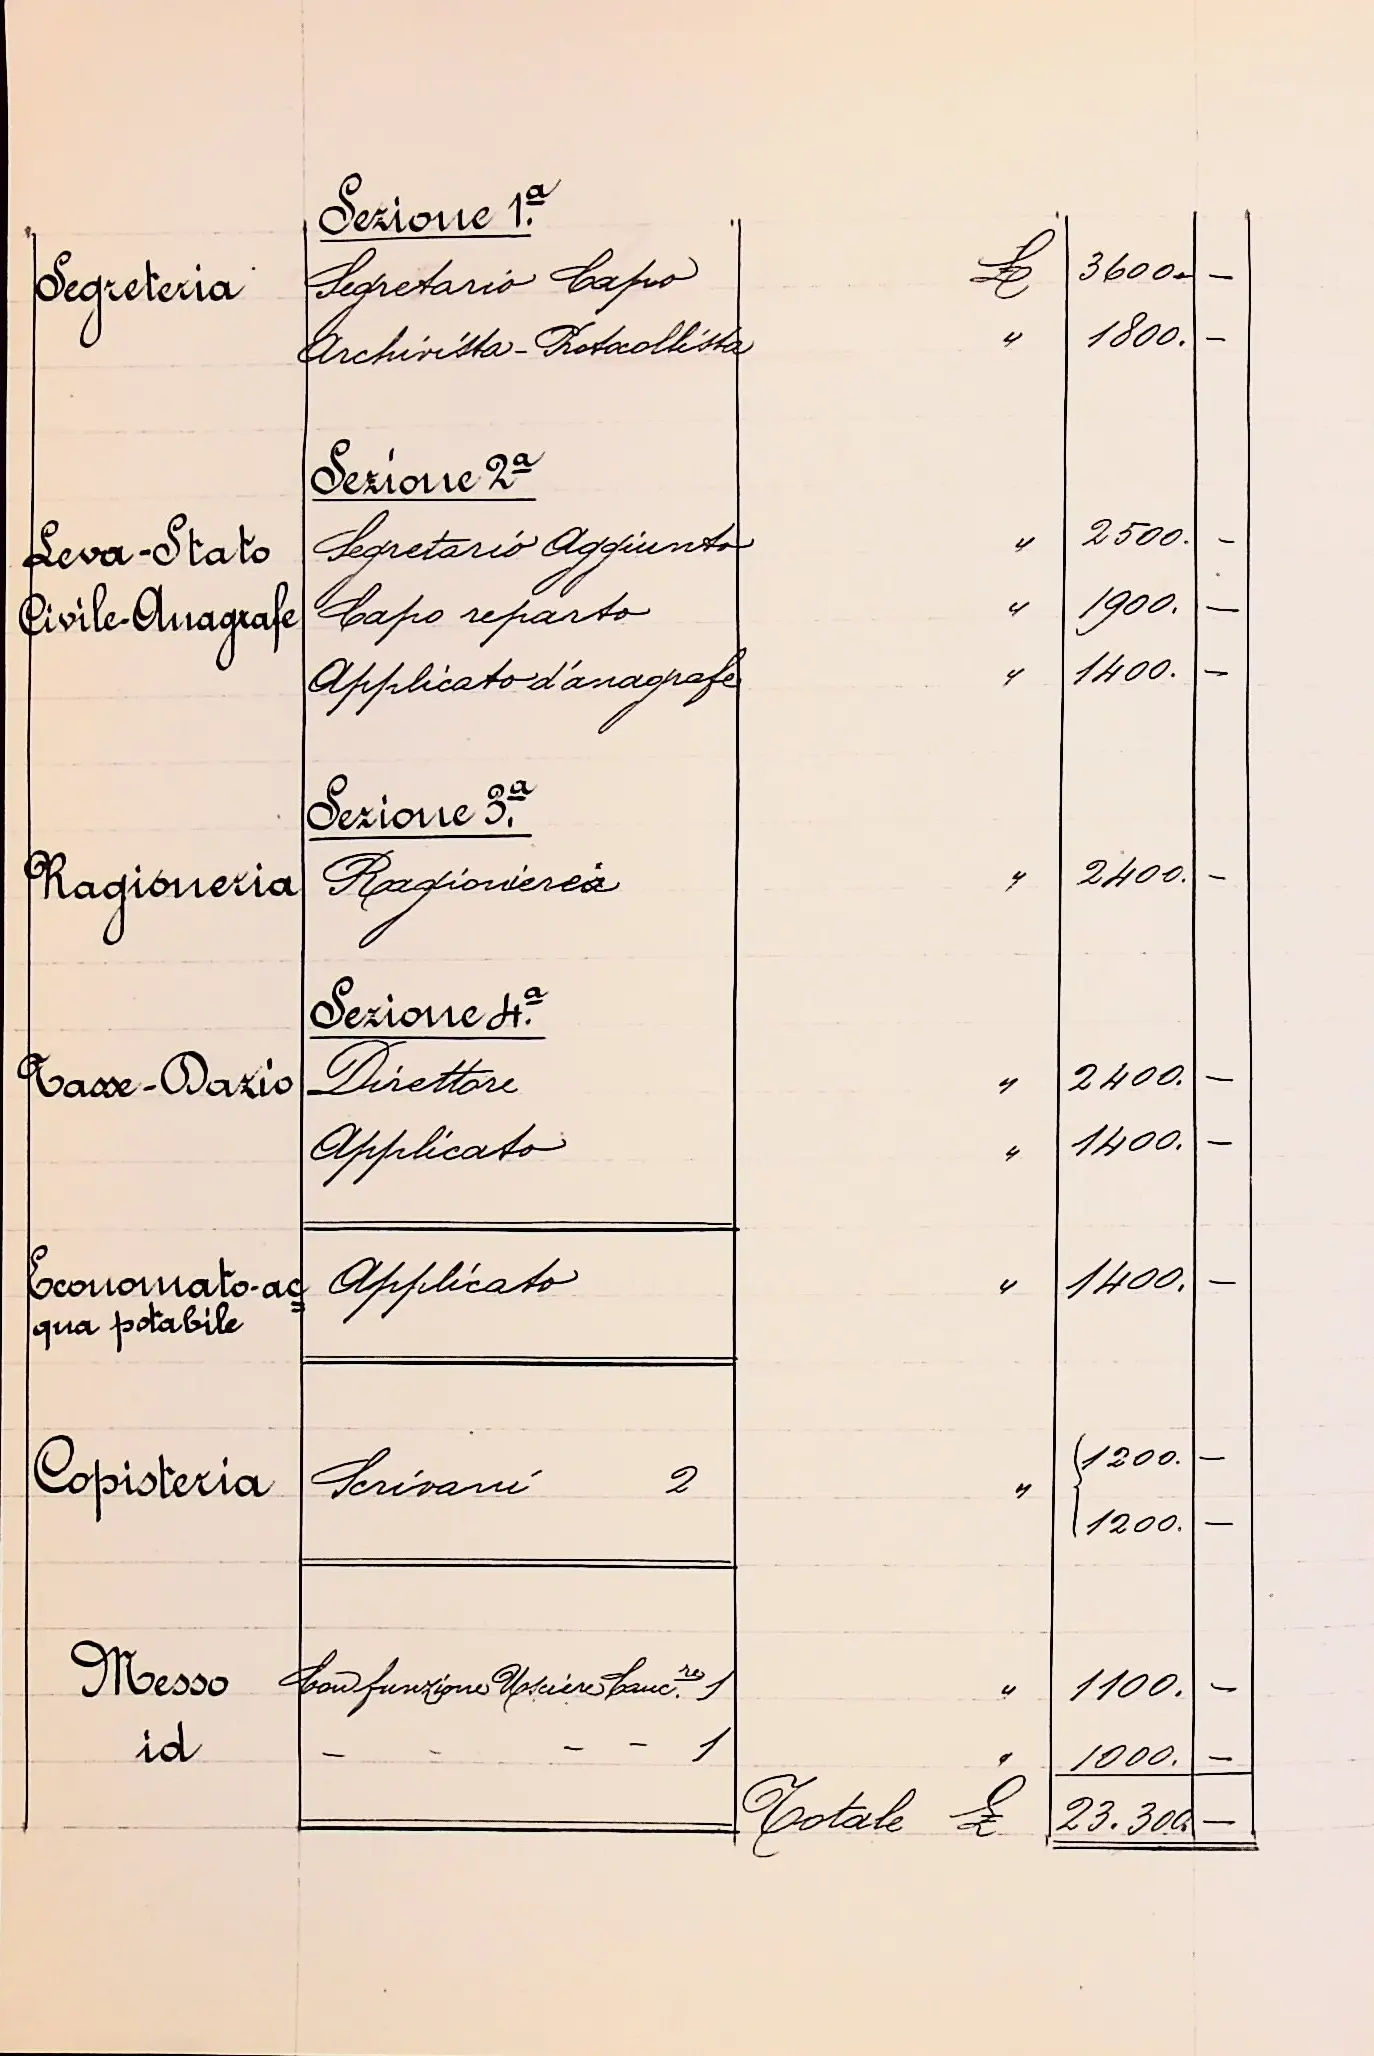 Sezione 1.ª
Segreteria Segretario Capo £ 3600. —
Archivista-Protocollista " 1800. —
Sezione 2ª
Leva-Stato Segretario Aggiunto " 2500. —
Civile-Anagrafe Capo reparto " 1900. —
Applicato d'anagrafe " 1400. —
Sezione 3.ª
Ragioneria " 2400. —
Sezione 4.ª
Tasse-Dazio Direttore " 2400. —
Applicato " 1400. —
Economato-ac= Applicato " 1400. —
qua potabile
Copisteria Scrivani 2 " { 1200. —
1200. —
Messo Con funzione Usciere Canc.re 1 " 1100. —
id — — — — 1 " 1000. —
Totale £ 23.300. —